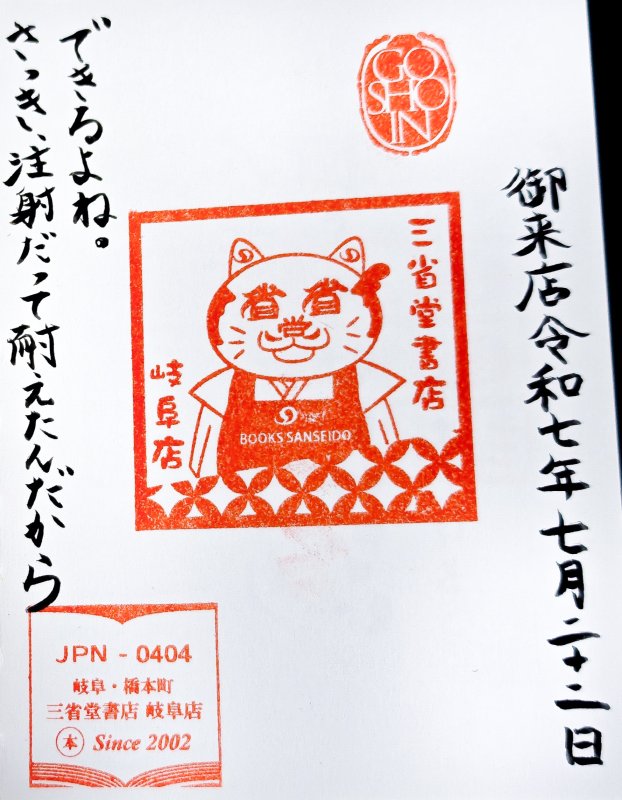 GO
SHO
IN
御来店令和七年七月二十二日
三省堂書店
省 省
堂
BOOKS SANSEIDO
岐阜店
できるよね。
さっき、注射だって耐えたんだから
JPN - 0404
岐阜・橋本町
三省堂書店 岐阜店
本 Since 2002